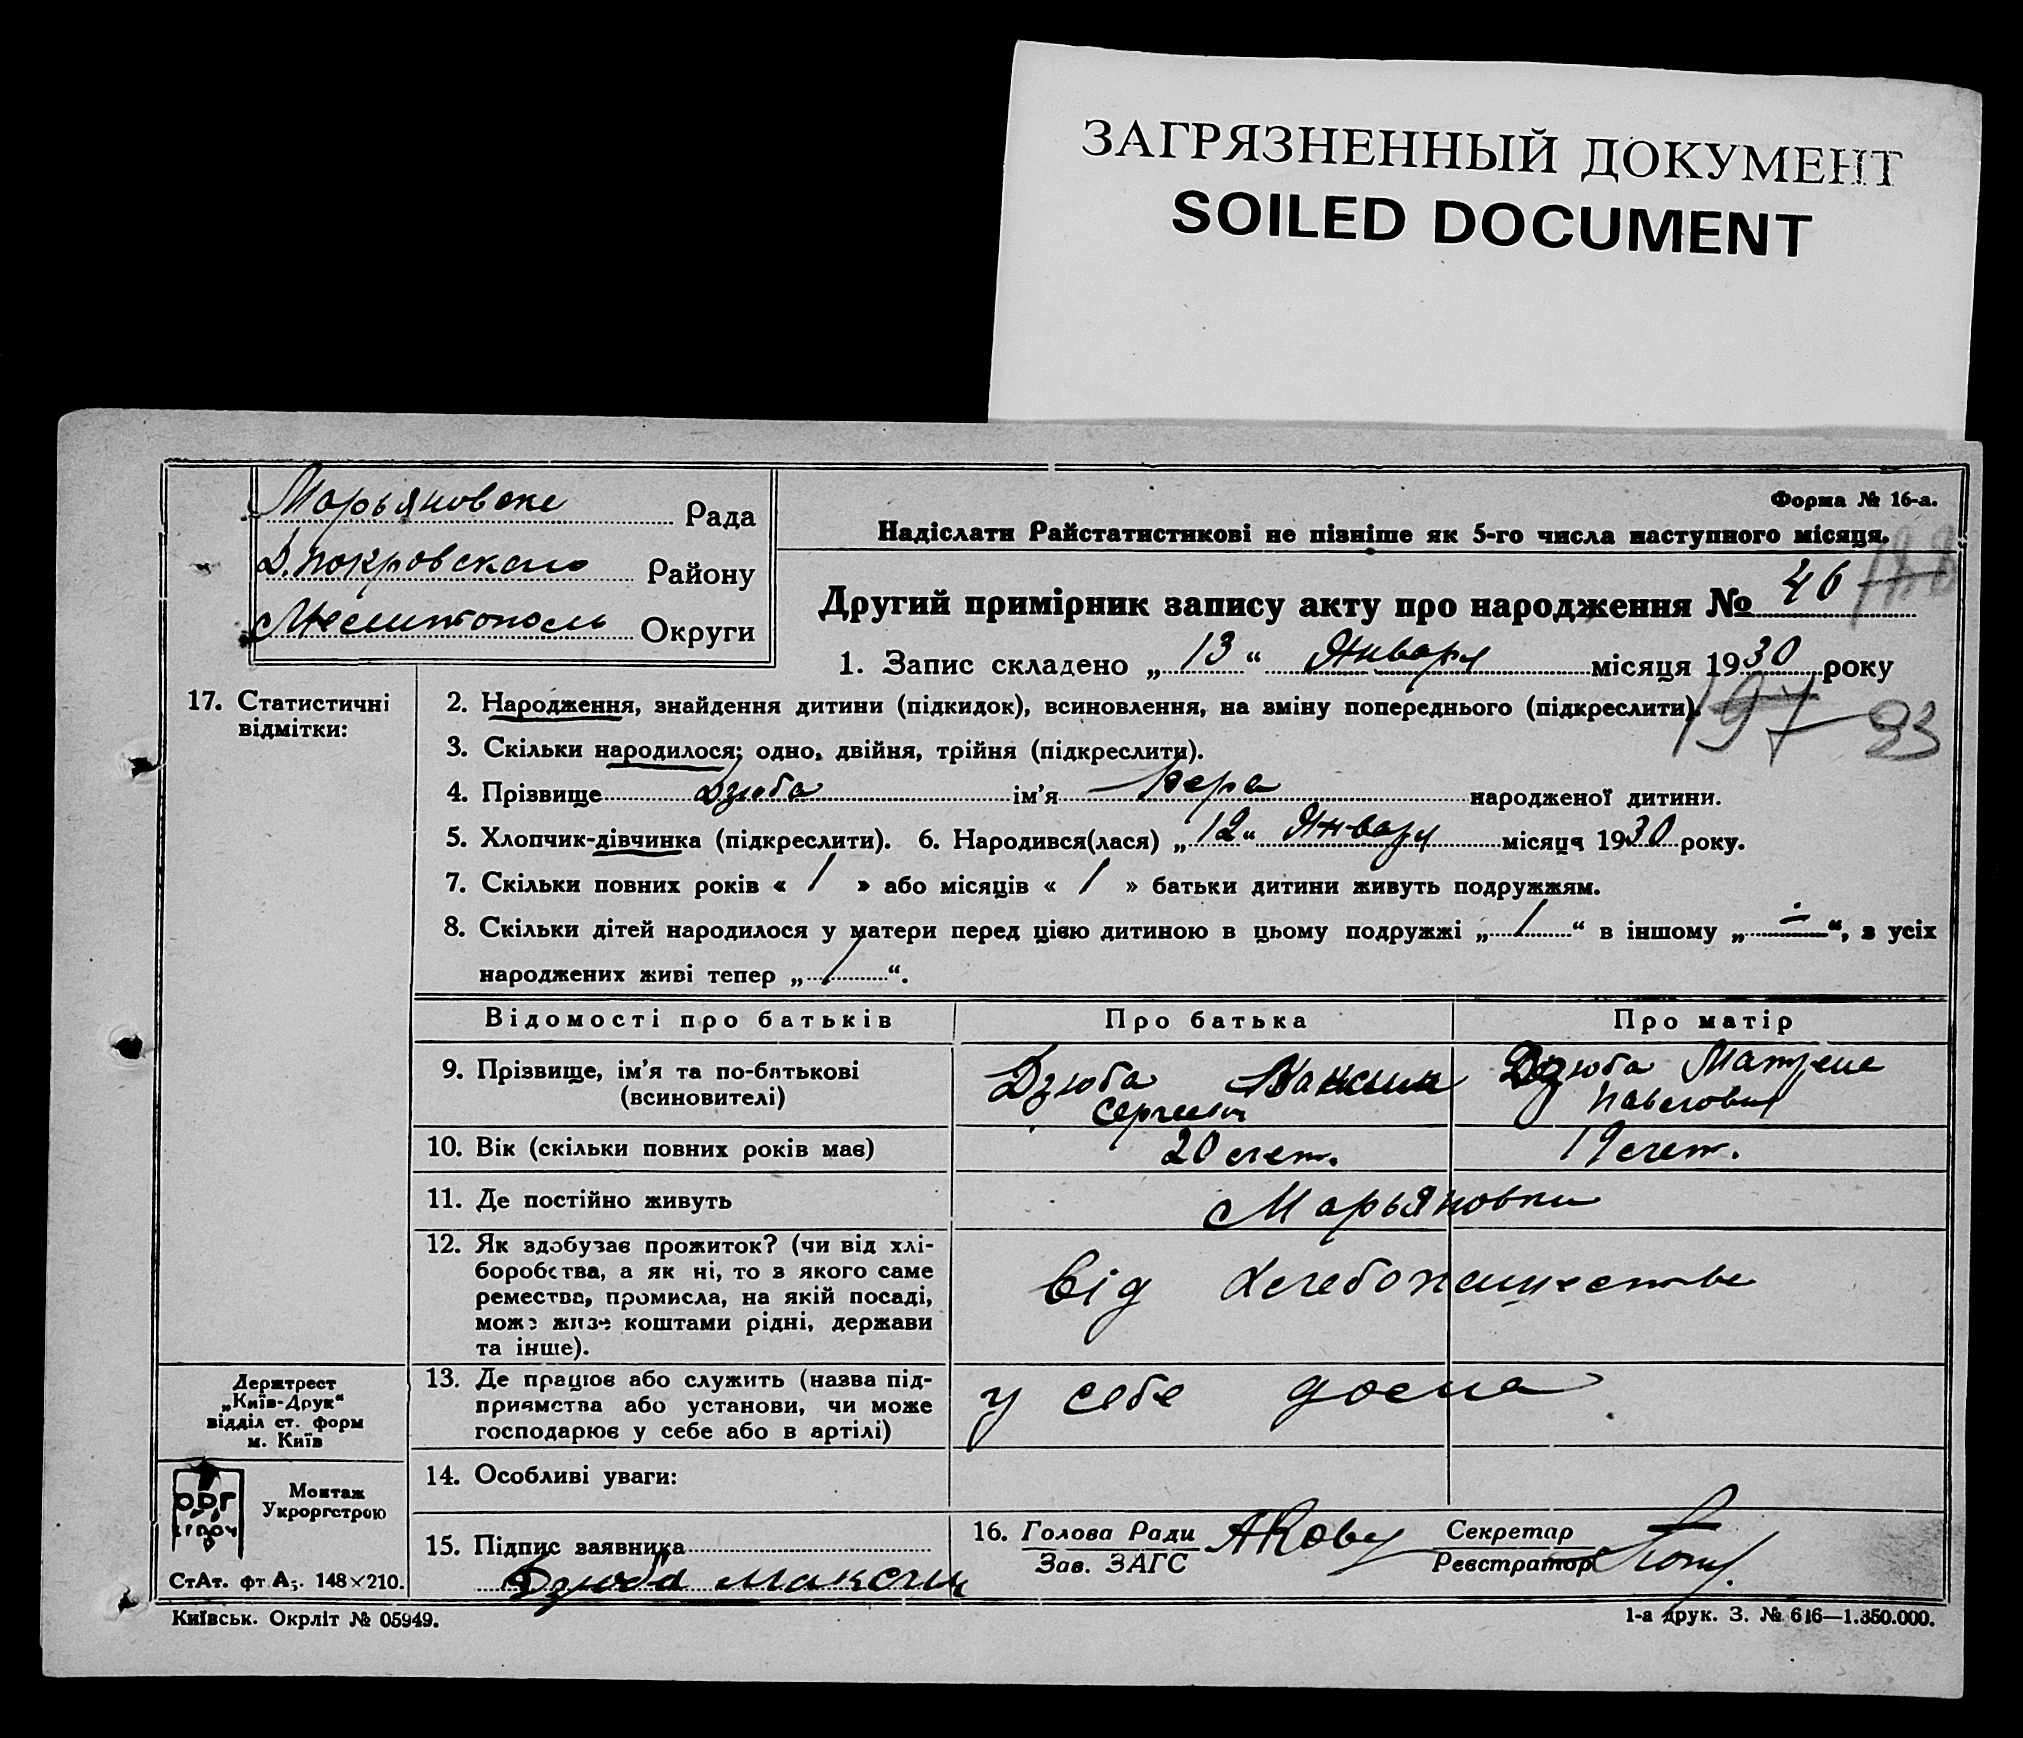 ЗАГРЯЗНЕННЫЙ ДОКУМЕНТ
SOILED DOCUMENT
Марьяновске Рада
Д.покровского Району
Мелитополь Округи
Форма № 16-а.
Надіслати Райстатистикові не пізніше як 5-го числа наступного місяця.
Другий примірник запису акту про народження № 46
1. Запис складено „ 13 “ Января місяця 1930 року
197 93
17. Статистичні
відмітки:
2. Народження, знайдення дитини (підкидок), всиновлення, на зміну попереднього (підкреслити).
3. Скільки народилося; одно, двійня, трійня (підкреслити).
4. Прізвище Дзюба ім’я Вера народженої дитини.
5. Хлопчик-дівчинка (підкреслити). 6. Народився(лася) „ 12 “ Января місяця 1930 року.
7. Скільки повних років « 1 » або місяців « 1 » батьки дитини живуть подружжям.
8. Скільки дітей народилося у матери перед цією дитиною в цьому подружжі „ 1 “ в іншому „ ÷ “, з усіх
народжених живі тепер „ 1 “.
Відомості про батьків Про батька Про матір
9. Прізвище, ім’я та по-батькові
(всиновителі)
Дзюба Максим
Сергеевич
Дзюба Матрена
Павеловна
10. Вік (скільки повних років має) 20 лет. 19 лет.
11. Де постійно живуть с Марьяновки
12. Як здобуває прожиток? (чи від хлі-
боробства, а як ні, то з якого саме
ремества, промисла, на якій посаді,
може живе коштами рідні, держави
та інше).
від хлебопашества
13. Де працює або служить (назва під-
приємства або установи, чи може
господарює у себе або в артілі)
у себе дома
14. Особливі уваги:
15. Підпис заявника
Дзюба Максим
16. Голова Ради
Зав. ЗАГС
Секретар
Реєстратор
Держтрест
„Київ-Друк“
відділ ст. форм
м. Київ
Монтаж
Укроргстрою
СтАт. фт А5. 148×210.
Київськ. Окрліт № 05949.
1-а друк. З. № 616—1.350.000.